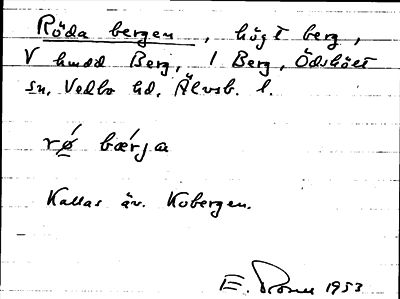 Röda bergen, högt berg,
V hmdd Berg, 1 Berg, Ödskölt
sn, Vedbo hd, Älvsb. l.
rø bærja
Kallas äv. Kobergen.
E. 1953